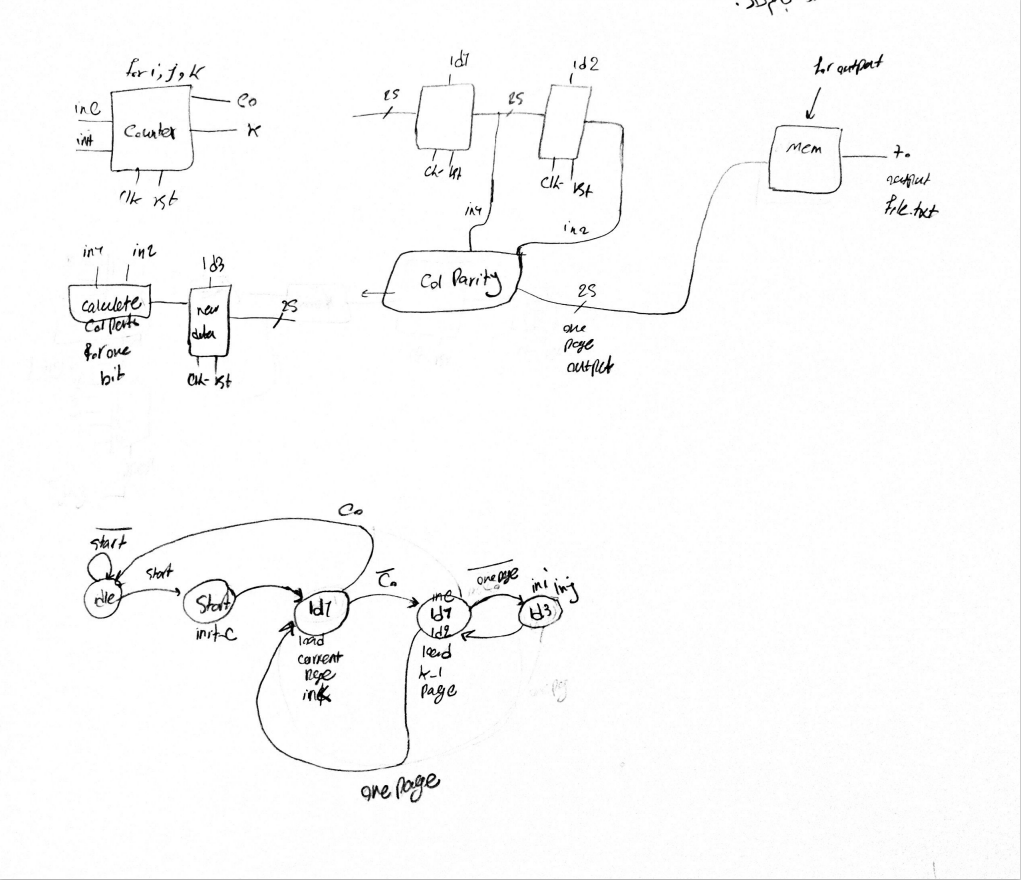 for i, j, k
inc
init
Counter
Co
K
clk rst
ld1
25
clk rst
25
ld2
clk rst
in1
in2
Col Parity
25
one
page
output
for output
mem
to
output
file.txt
in1 in2
calculate
for one
bit
ld3
new
data
clk rst
25
start
Idle
start
Start
init-C
Co
ld1
load
current
page
Co
inc
ld1
ld2
load
k-1
page
onepage
ini inj
ld3
one page